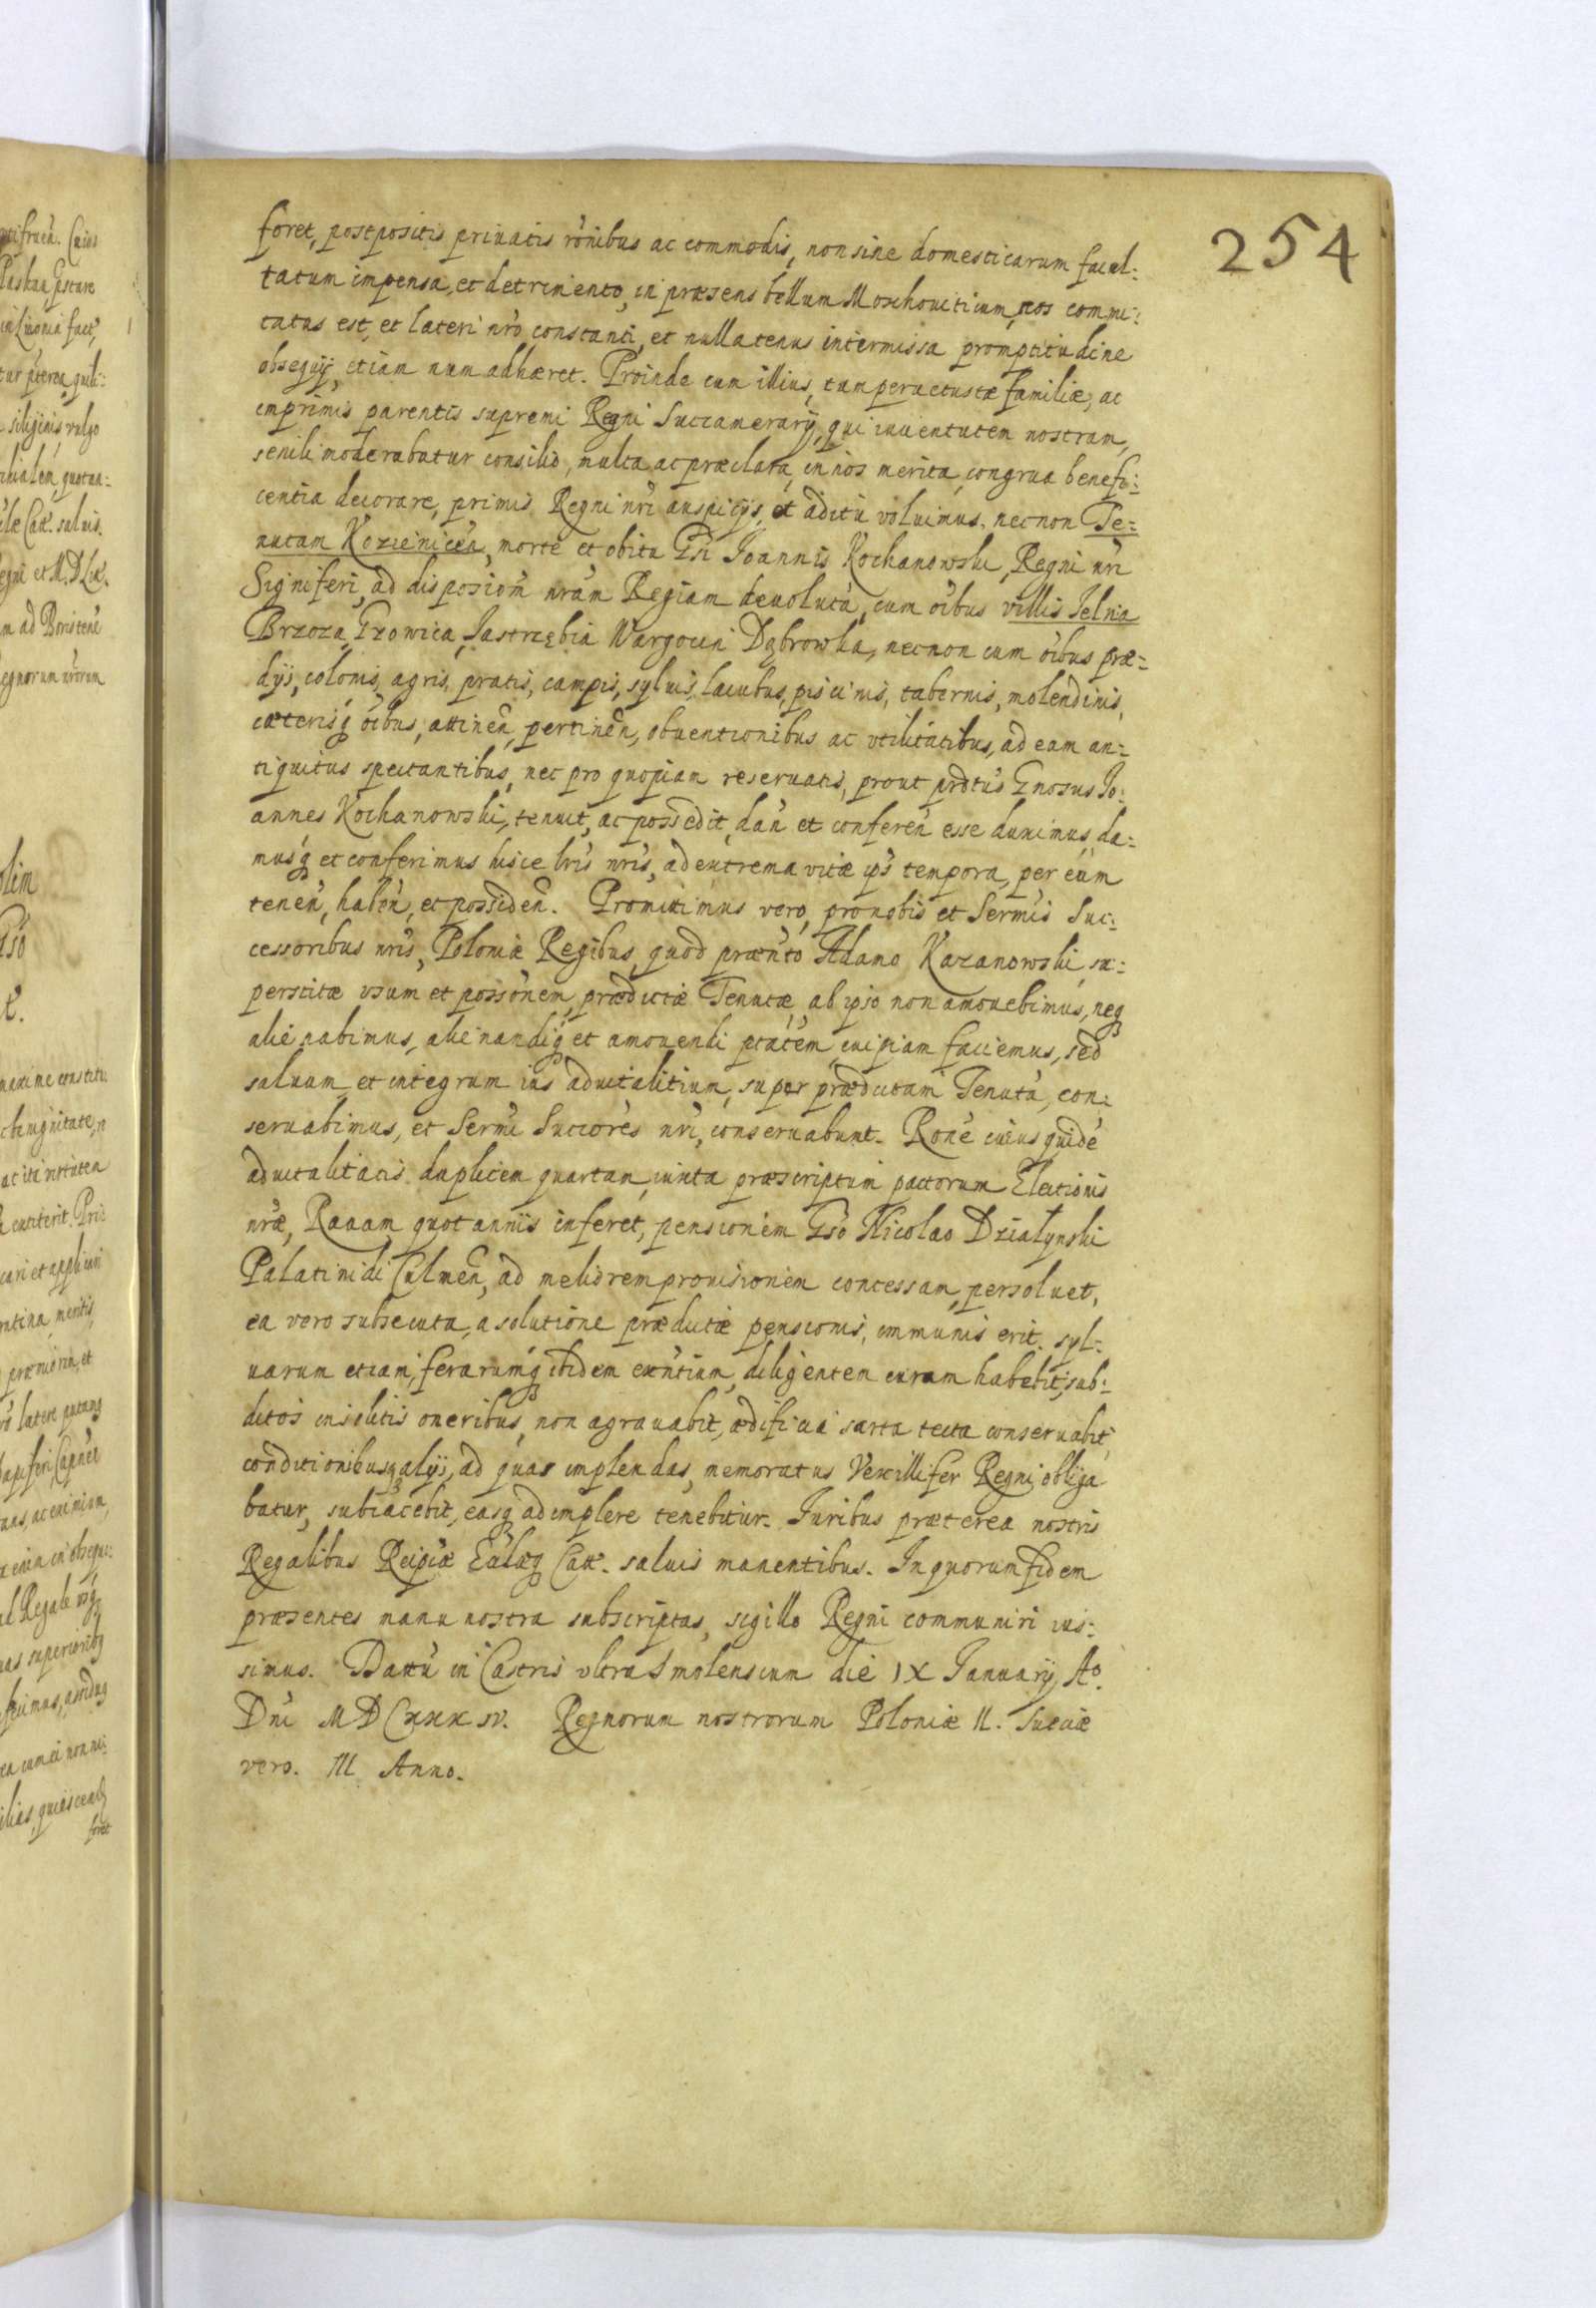 254
foret, postpositis priuatis rõnibus ac commodis, non sine domesticarum facul:
tatum impensa, et detrimento, in præsens bellum Moschouiticum, nos commi:
tatus est, et lateri nrõ constanti, et nullatenus intermissa promptitudine
obsequij, etiam num adhæret. Proinde cum illius, tum peruetustæ familiæ, ac
imprimis parentis supremi Regni Succamerarij, qui iuuentutem nostram,
senili moderabatur consilio, multa ac præclara, in nos merita, congrua benefi:
centia decorare, primis Regni nrĩ auspicijs, et aditu voluimus. necnon Te:
nutam Kozienicen̄, morte et obitu Gsi Joannis Kochanowski, Regni nrĩ
Signiferi, ad disposiõm nrãm Regiam deuolutã, cum oĩbus villis Jelnia
Brzoza, Growica, Jastrzębia Wargocin Dąbrowka, necnon cum oĩbus præ:
dijs, colonis, agris, pratis, campis, syluis, lacubus, piscinis, tabernis, molendinis,
cæterisq oĩbus, attinen̄, pertinen̄, obuentionibus ac vtilitatibus, ad eam an:
tiquitus spectantibus, nec pro quopiam reseruatis, prout prdtus Gnosus Jo:
annes Kochanowski, tenuit, ac possedit, dan̄ et conferen̄ esse duximus, da:
musq et conferimus hisce lrĩs nrĩs, ad extrema vitæ ips tempora, per eum
tenen̄, haben̄, et possiden̄. Promittimus vero, pro nobis et Sermis Suc:
cessoribus nrĩs, Poloniæ Regibus, quod præfnto Adamo Kazanowski, su:
perstite vsum et possõnem, prædictæ Tenutæ, ab ipso non amouebimus, neq
alienabimus, alienandiq et amouendi ptãtem, cuipiam faciemus, sed
saluum et integrum ius aduitalitium, super prædictam Tenutã, con:
seruabimus, et Sermi Succores nrĩ, conseruabunt. Rone cuius quidẽ
aduitalitatis duplicem quartam, iuxta præscriptum pactorum Electionis
nrǽ, Rauam quotannis inferet, pensionem Gso Nicolao Działynski
Palatinidi Culmen̄, ad meliorem prouisionem concessam, persoluet,
ea vero subsecuta, a solutione prædictæ pensionis, immunis erit. syl:
uarum etiam, ferarumq ibidem exñtium, diligentem curam habebit, sub:
ditos insolitis oneribus, non agrauabit, ædificia sarta tecta conseruabit,
conditionibusq alijs, ad quas implendas, memoratus Vexillifer Regni obliga
batur, subiacebit, easq adimplere tenebitur. Juribus præterea nostris
Regalibus Reipcæ Eclæq Catt. saluis manentibus. In quorum fidem
præsentes manu nostra subscriptas, sigillo Regni communiri ius:
simus. Dattũ in Castris vltra Smolenscum die IX Januarij, Ao.
Dni MDCXXXIV. Regnorum nostrorum Poloniæ II. Sueciæ
vero. III Anno.